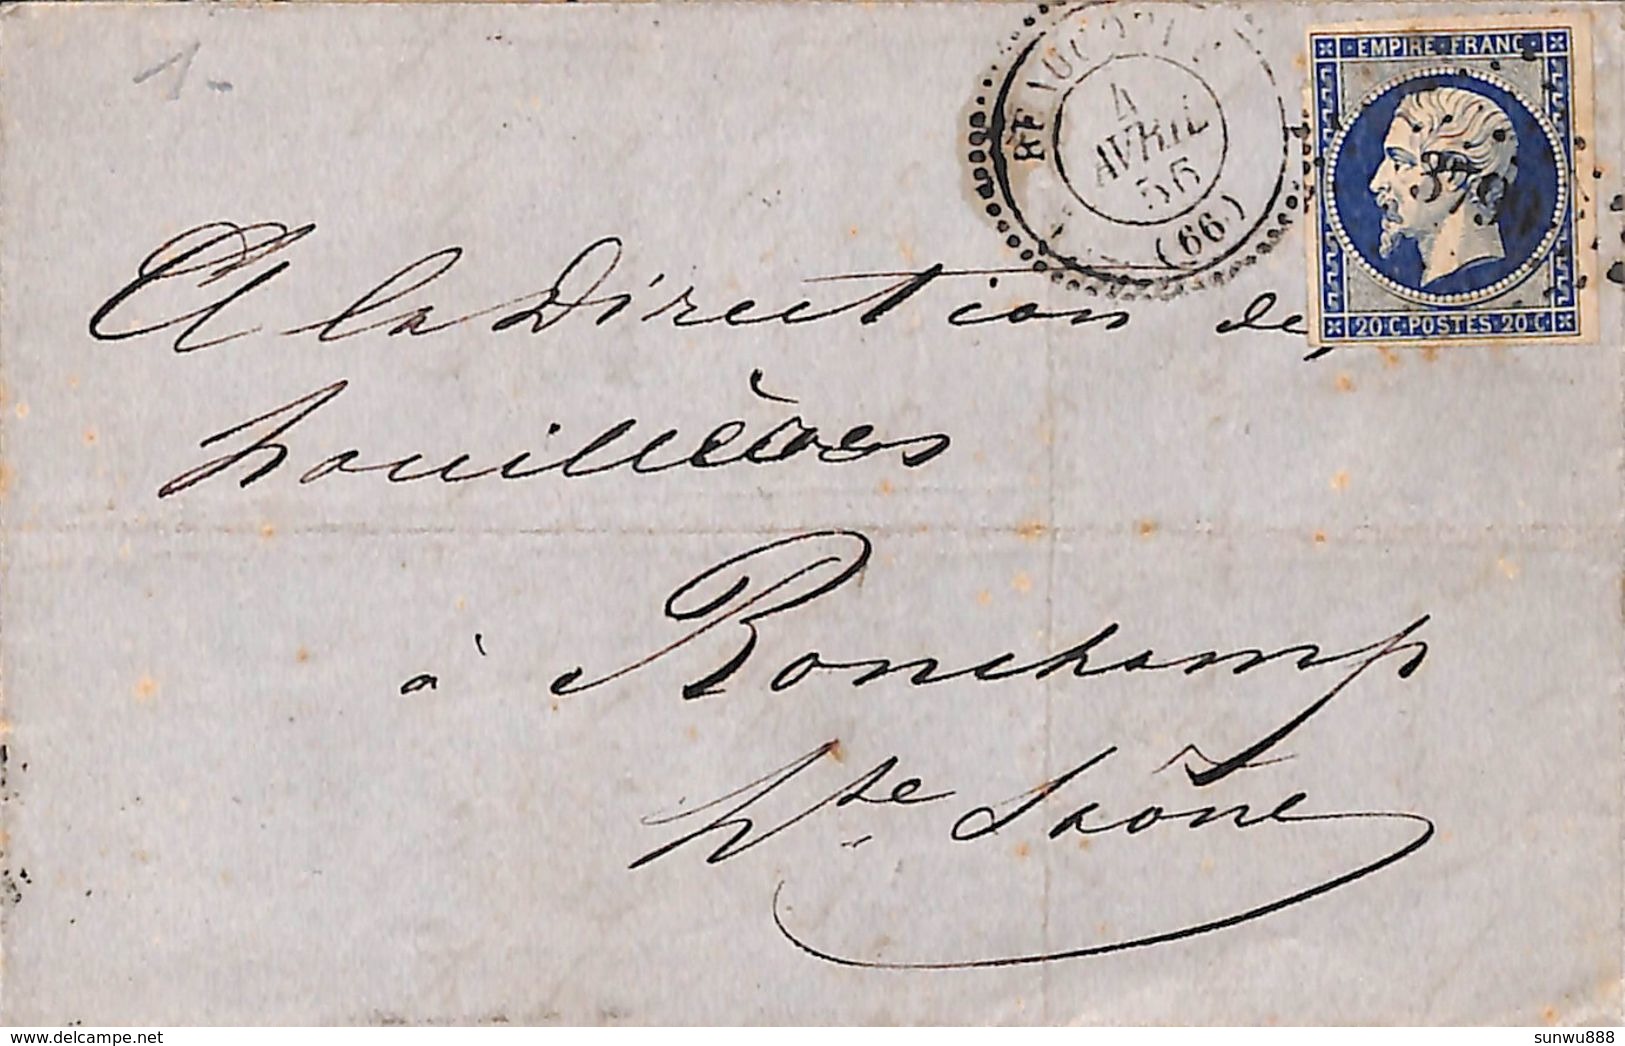 1-
BEAUCOURT
4
AVRIL
56
(66)
EMPIRE · FRANC ·
20 C · POSTES · 20 C
A la Direction des
houillères
à Ronchamp
Hte Saône
delcampe.net
sunwu888